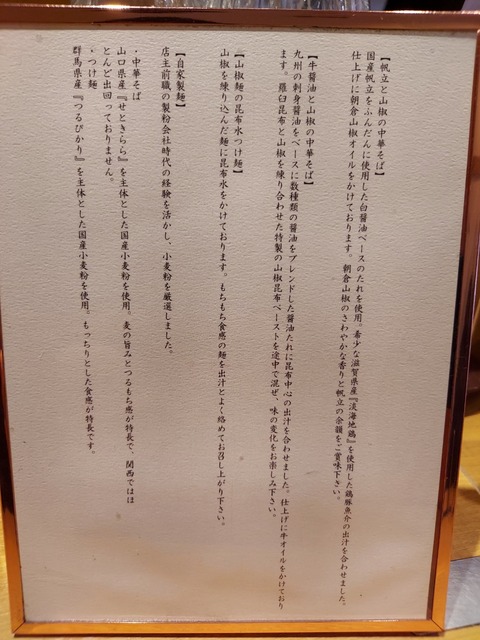 【帆立と山椒の中華そば】
国産帆立をふんだんに使用した白醤油ベースのたれを使用。希少な滋賀県産『淡海地鶏』を使用した鶏豚魚介の出汁を合わせました。
仕上げに朝倉山椒オイルをかけております。朝倉山椒のさわやかな香りと帆立の余韻をご賞味下さい。
【牛醤油と山椒の中華そば】
九州の刺身醤油をベースに数種類の醤油をブレンドした醤油たれに昆布中心の出汁を合わせました。仕上げに牛オイルをかけており
ます。羅臼昆布と山椒を練り合わせた特製の山椒昆布ペーストを途中で混ぜ、味の変化をお楽しみ下さい。
【山椒麺の昆布水つけ麺】
山椒を練り込んだ麺に昆布水をかけております。もちもち食感の麺を出汁とよく絡めてお召し上がり下さい。
【自家製麺】
店主前職の製粉会社時代の経験を活かし、小麦粉を厳選しました。
・中華そば
山口県産『せときらら』を主体とした国産小麦粉を使用。麦の旨みとつるもち感が特長で、関西ではほ
とんど出回っておりません。
・つけ麺
群馬県産『つるぴかり』を主体とした国産小麦粉を使用。もっちりとした食感が特長です。